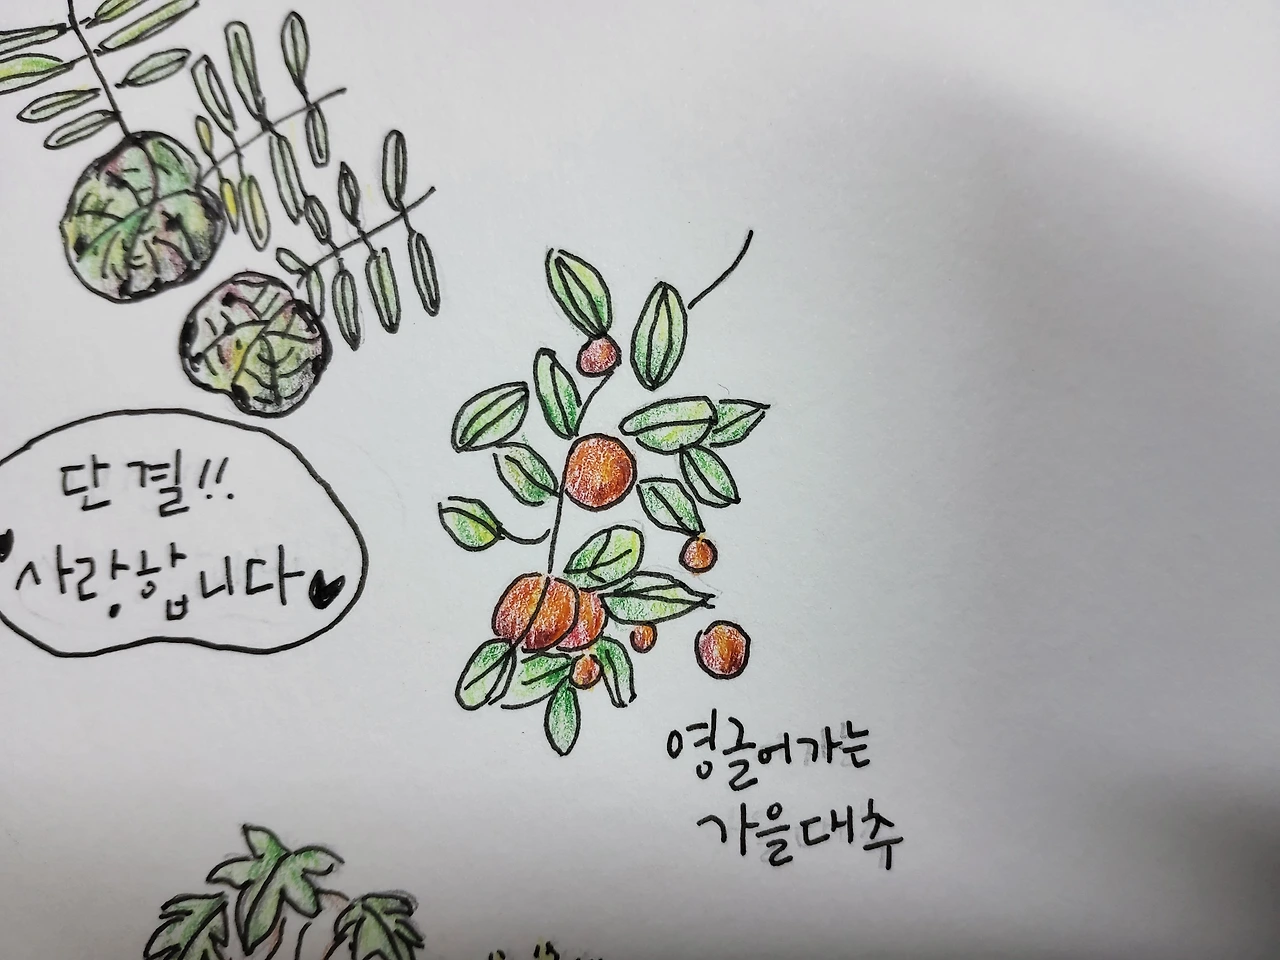 단결!!
사랑합니다
영글어가는
가을대추